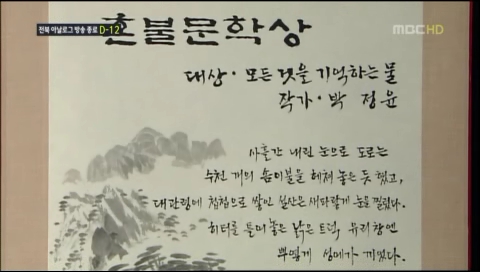 전북 아날로그 방송 종료 D-12
MBC HD
혼불문학상
대상·모든 것을 기억하는 물
작가·박 정윤
사흘간 내린 눈으로 도로는
수천 개의 솜이불을 헤쳐 놓은 듯했고,
대관령에 첩첩으로 쌓인 설산은 새파랗게 눈을 찔렀다.
히터를 틀어놓은 낡은 트럭 유리창엔
뿌옇게 성에가 끼었다.